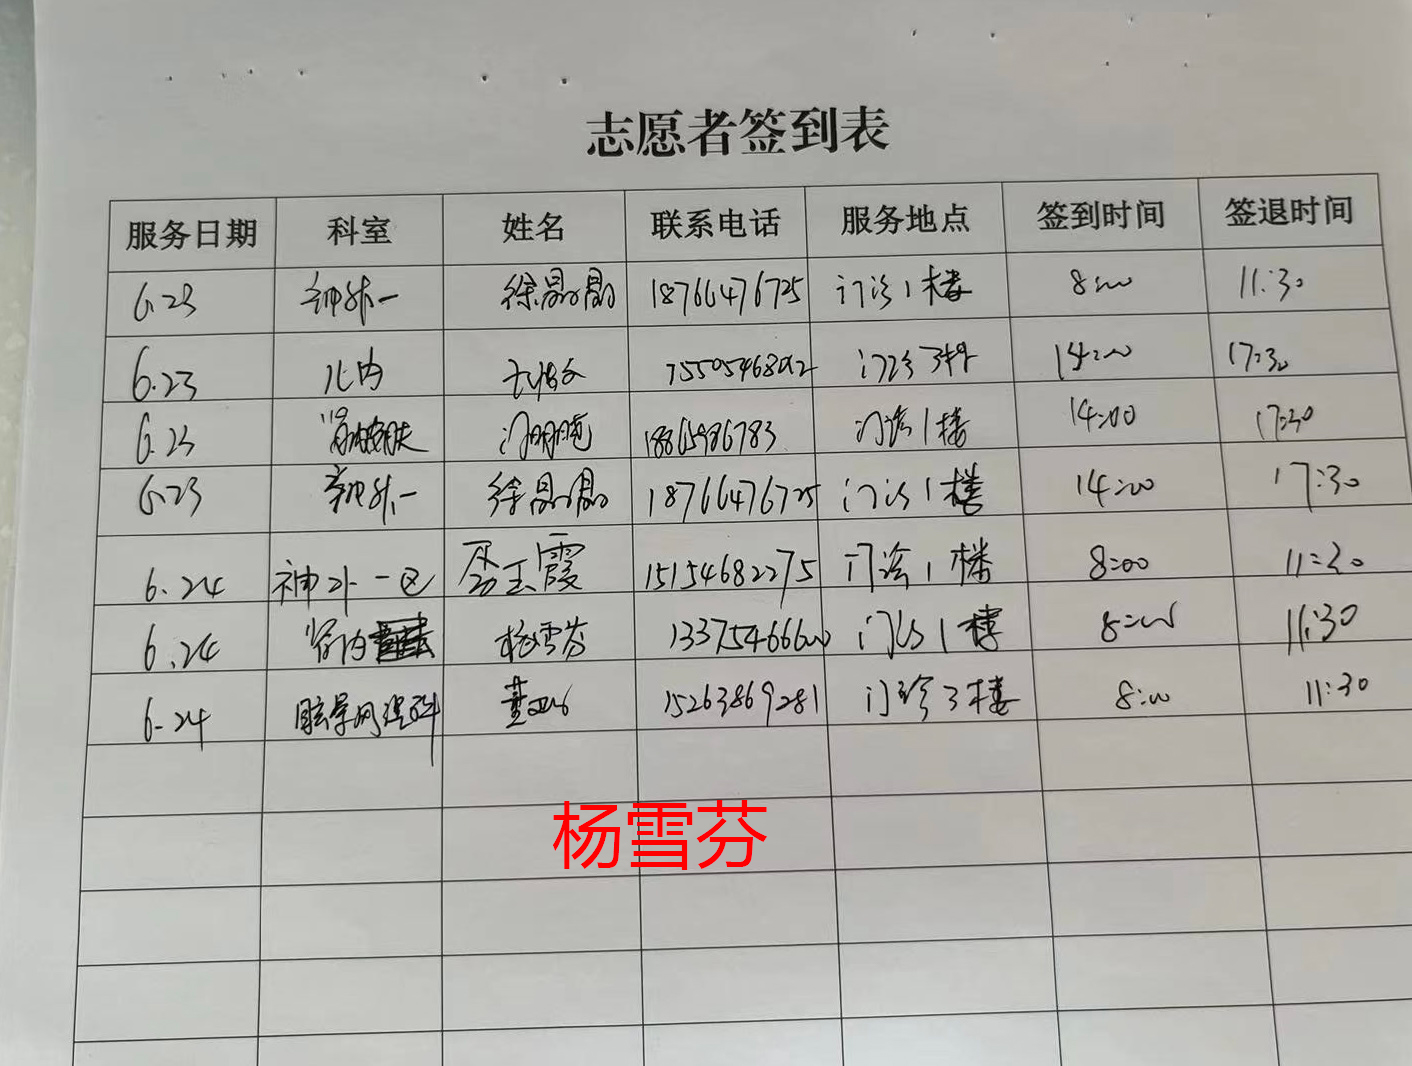 志愿者签到表
服务日期 科室 姓名 联系电话 服务地点 签到时间 签退时间
6.23 神外一 徐晶晶 18766476725 门诊1楼 8:00 11:30
6.23 儿内 门诊3楼 14:00 17:30
6.23 门诊1楼 14:00 17:30
6.23 神外一 徐晶晶 18766476725 门诊1楼 14:00 17:30
6.24 神外一区 玉霞 15154682275 门诊1楼 8:00 11:30
6.24 肾内 杨雪芬 门诊1楼 8:00 11:30
6.24 15263869281 门诊3楼 8:00 11:30
杨雪芬